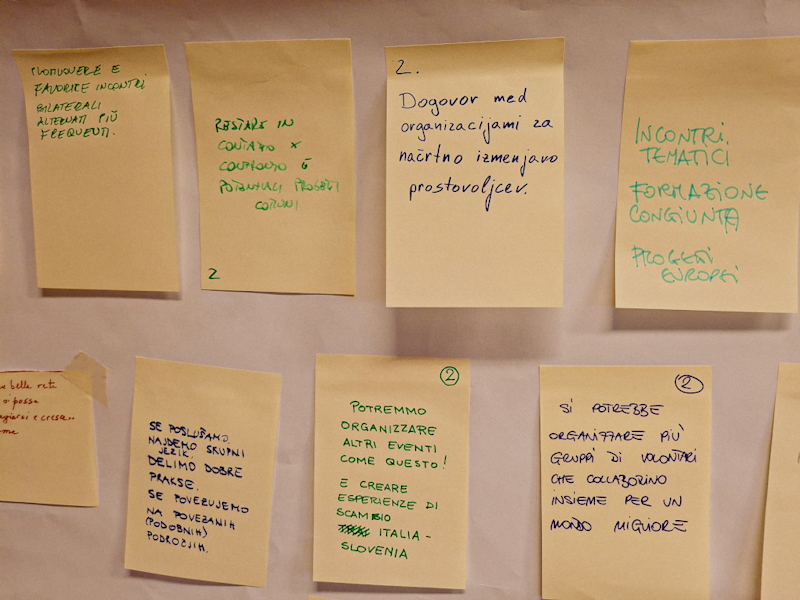 PROMUOVERE E
FAVORIRE INCONTRI
BILATERALI
ALTERNATI PIÙ
FREQUENTI.
RESTARE IN
CONTATTO X
CONFRONTO E
POTENZIALI PROGETTI
COMUNI
2
2.
Dogovor med
organizacijami za
načrtno izmenjavo
prostovoljcev.
INCONTRI
TEMATICI
FORMAZIONE
CONGIUNTA
PROGETTI
EUROPEI
belle reti
possa
e cresa..
SE POSLUŠAMO,
NAJDEMO SKUPNI
JEZIK.
DELIMO DOBRE
PRAKSE.
SE POVEZUJEMO
NA POVEZANIH
(PODOBNIH)
PODROČJIH.
2
POTREMMO
ORGANIZZARE
ALTRI EVENTI
COME QUESTO!
E CREARE
ESPERIENZE DI
SCAMBIO
ITALIA -
SLOVENIA
2
SI POTREBBE
ORGANIZZARE PIÙ
GRUPPI DI VOLONTARI
CHE COLLABORINO
INSIEME PER UN
MONDO MIGLIORE